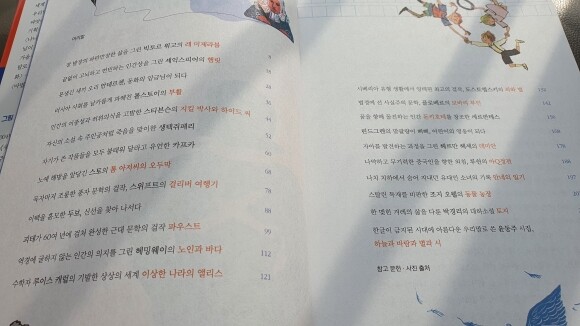 머리말
불 평생의 파란만장한 삶을 그린 빅토르 위고의 레 미제라블
끝없이 고뇌하고 번민하는 인간상을 그린 셰익스피어의 햄릿
못생긴 새끼 오리 안데르센, 동화의 임금님이 되다
러시아 사회를 날카롭게 파헤친 톨스토이의 부활
인간의 이중성과 위선의식을 고발한 스티븐슨의 지킬 박사와 하이드 씨
자신의 소설 속 주인공처럼 죽음을 맞이한 생텍쥐페리
자기가 쓴 작품들을 모두 불태워 달라고 유언한 카프카
노예 해방을 앞당긴 스토의 톰 아저씨의 오두막
묵자마저 조롱한 풍자 문학의 걸작, 스위프트의 걸리버 여행기
이백을 흠모한 두보, 신선을 찾아 나서다
괴테가 60여 년에 걸쳐 완성한 근대 문학의 걸작 파우스트
역경에 굴하지 않는 인간의 의지를 그린 헤밍웨이의 노인과 바다
수학자 루이스 캐럴의 기발한 상상의 세계 이상한 나라의 앨리스
68
78
88
99
112
121
시베리아 유형 생활에서 잉태된 최고의 걸작, 도스토옙스키의 죄와 벌
플로베르의 보바리 부인
꿈을 향해 돌진하는 인간 돈키호테를 창조한 세르반테스
린드그렌의 말괄량이 삐삐, 어린이의 영웅이 되다
자아를 발견하는 과정을 그린 헤르만 헤세의 데미안
나약하고 무기력한 중국인을 향한 외침, 루쉰의 아Q정전
나치 치하에서 숨어 지내던 유대인 소녀의 기록 안네의 일기
스탈린 독재를 비판한 조지 오웰의 동물 농장
한 맺힌 겨레의 삶을 다룬 박경리의 대하소설 토지
한글이 금지된 시대에 아름다운 우리말로 쓴 윤동주 시집,
하늘과 바람과 별과 시
참고 문헌·사진 출처